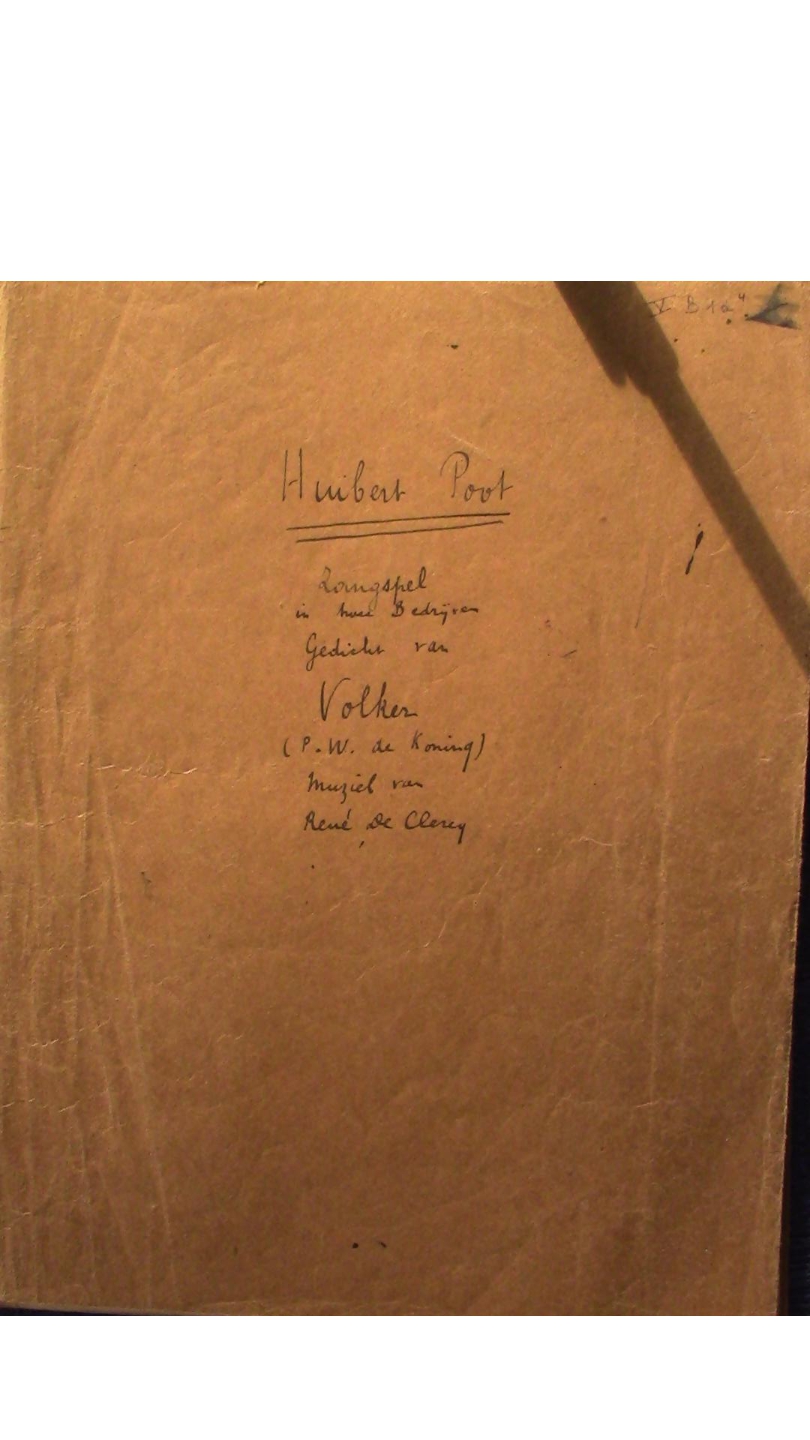 V B 1a4
Huibert Poot
Zangspel
in twee Bedrijven
Gedicht van
Volker
(P.W. de Koning)
Muziek van
René De Clercq